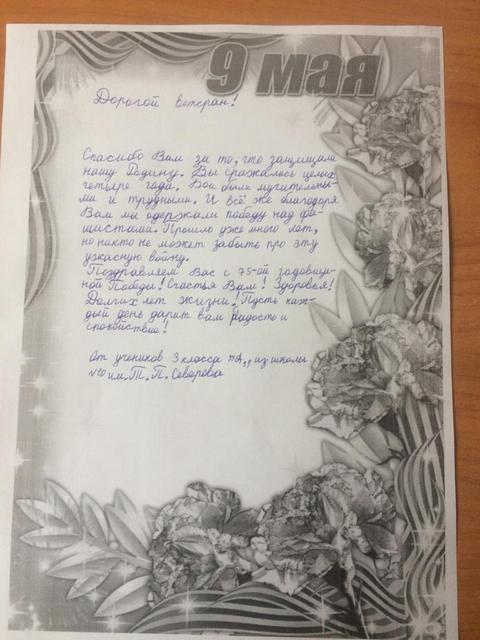 9 мая
Дорогой ветеран!
Спасибо Вам за то, что защищали
нашу Родину. Вы сражались целых
четыре года. Бои были мучительны-
ми и трудными. И всё же благодаря
Вам мы одержали победу над фа-
шистами. Прошло уже много лет,
но никто не может забыть про эту
ужасную войну.
Поздравляем Вас с 75-ой годовщи-
ной Победы! Счастья Вам! Здоровья!
Долгих лет жизни! Пусть каж-
дый день дарит вам радость и
спокойствие!
От учеников 3 класса из школы
№10 им. Т. П. Северова